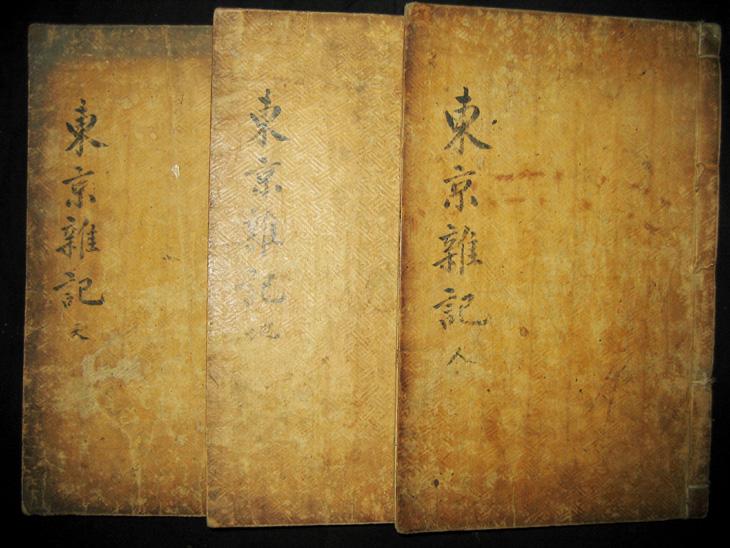 東京雜記 天
東京雜記 地
東京雜記 人